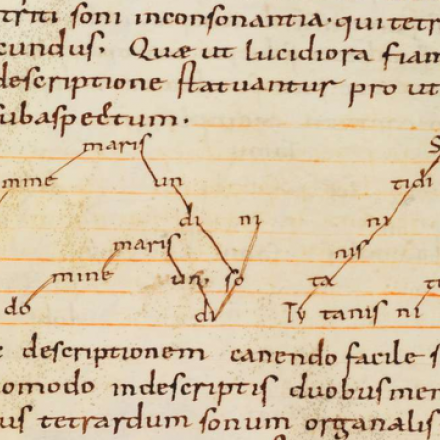 triti soni inconsonantia · qui tetr
cundus. Quæ ut lucidiora fiam
descriptione statuantur pro ut
subaspectum.
maris
mine un tidi
di ni ni
maris nis
mine un so ta
do di Ty tanis ni
descriptionem canendo facile s
omodo indescriptis duobus mem
us tetrardum sonum organalis